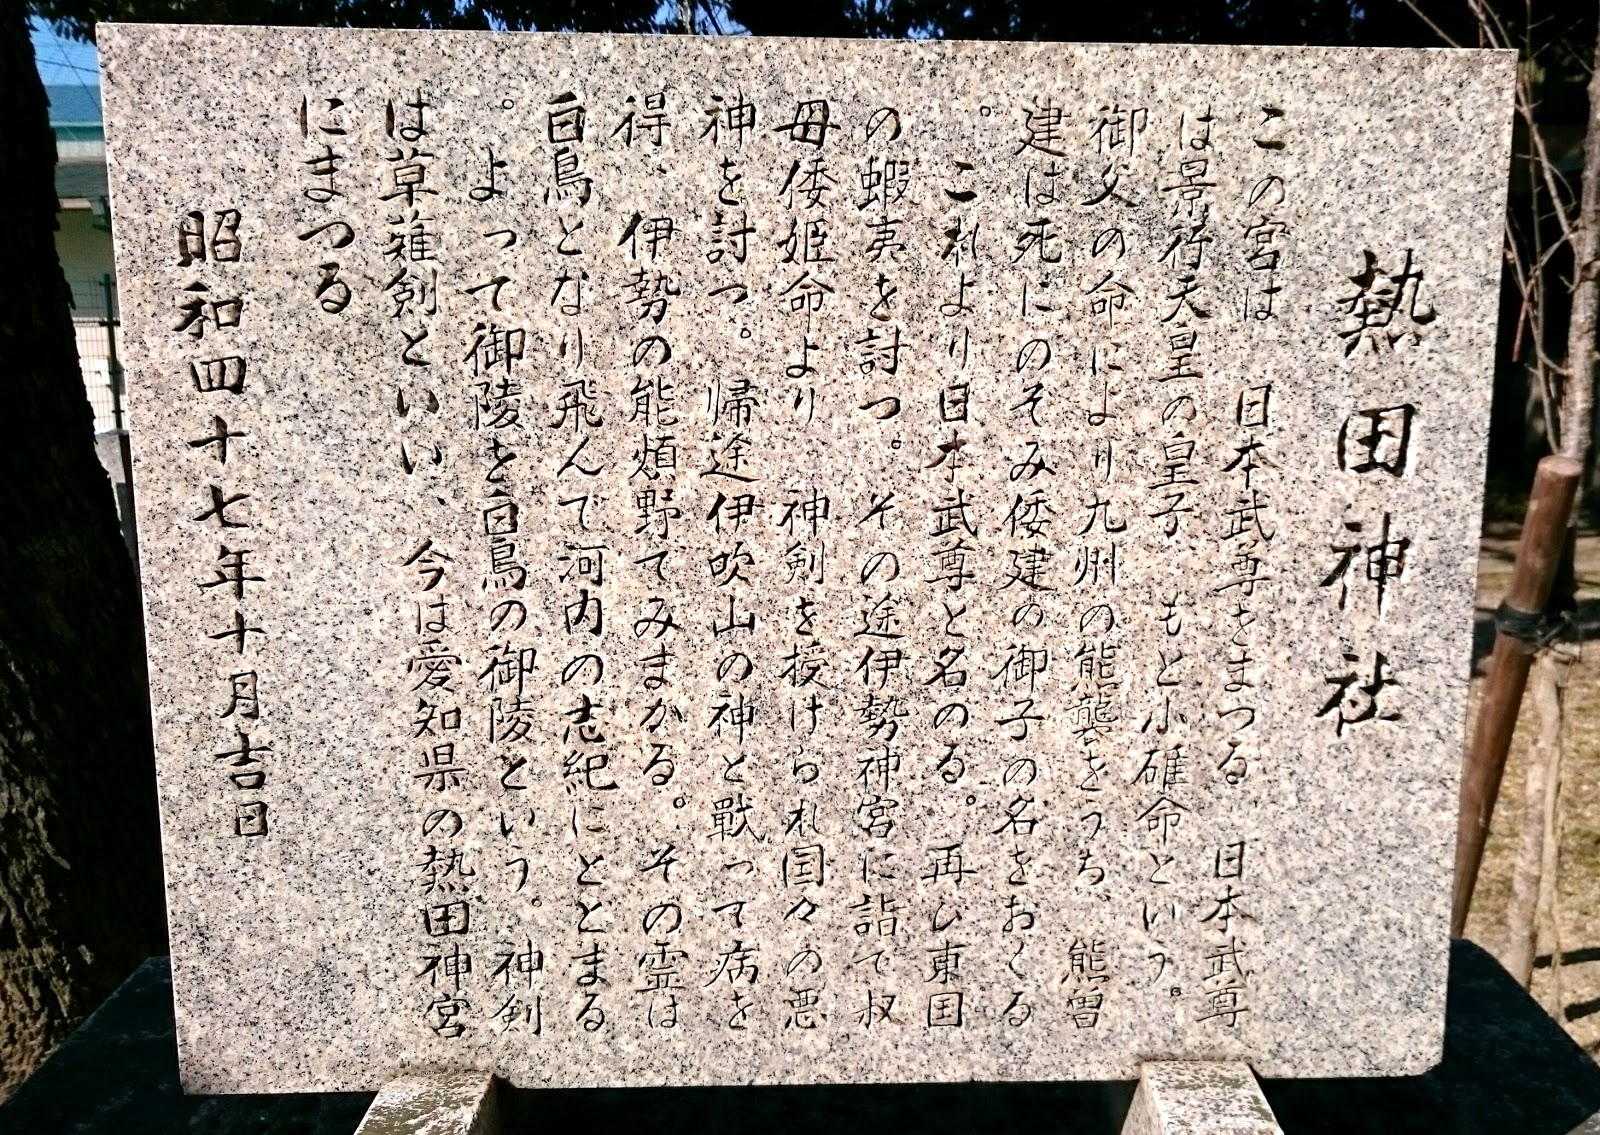 熱田神社
この宮は 日本武尊をまつる 日本武尊
は景行天皇の皇子、もと小碓命という。
御父の命により九州の熊襲をうち、熊曽
建は死にのぞみ倭建の御子の名をおくる
。これより日本武尊と名のる。再び東国
の蝦夷を討つ。その途伊勢神宮に詣で叔
母倭姫命より 神剣を授けられ国々の悪
神を討つ。帰途伊吹山の神と戦って病を
得、伊勢の能煩野でみまかる。その霊は
白鳥となり飛んで河内の志紀にとどまる
。よって御陵を白鳥の御陵という。神剣
は草薙剣といい、今は愛知県の熱田神宮
にまつる
昭和四十七年十月吉日